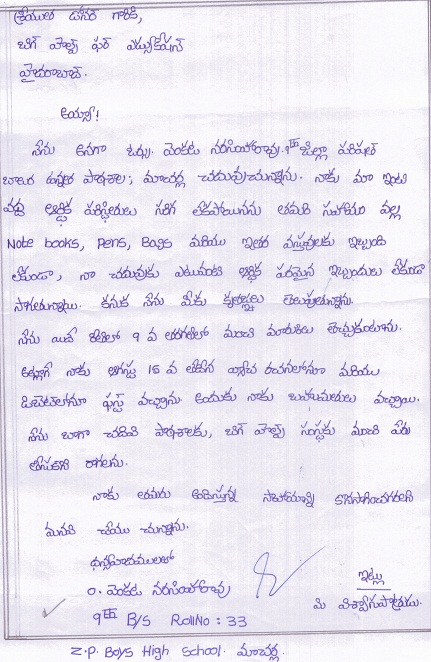 శ్రీయుత డోనర్ గారికి,
బిగ్ హెల్ప్ ఫర్ ఎడ్యుకేషన్
హైదరాబాద్.
అయ్యా!
నేను అనగా ఓర్సు. వెంకట నరసింహారావు. 9th జిల్లా పరిషత్
బాలుర ఉన్నత పాఠశాల; మాచర్ల చదువుచున్నాను. నాకు మా ఇంటి
వద్ద ఆర్థిక పరిస్థితులు సరిగ లేకపోయినను తమరి సహాయం వల్ల
Note books, Pens, Bags మరియు ఇతర వస్తువులకు ఇబ్బంది
లేకుండా, నా చదువుకు ఎటువంటి ఆర్థిక పరమైన ఇబ్బందులు లేకుండా
సాగుతున్నాయి. కనుక నేను మీకు కృతజ్ఞతలు తెలుపుతున్నాను.
నేను ఇదే రీతిలో 9 వ తరగతిలో మంచి మార్కులు తెచ్చుకుంటాను.
అట్లాగే నాకు ఆగస్టు 15 వ తేదిన వ్యాస రచనలోనూ మరియు
డిబెట్‌లోనూ ఫస్ట్ వచ్చాను. అందుకు నాకు బహుమతులు వచ్చాయి.
నేను బాగా చదివి పాఠశాలకు, బిగ్ హెల్ప్ సంస్థకు మంచి పేరు
తీసుకుని రాగలను.
నాకు తమరు అందిస్తున్న సాహాయాన్ని కొనసాగించగలరని
మనవి చేయు చున్నాను.
ధన్యవాదములతో
ఇట్లు
O. వెంకట నరసింహారావు
మి విశ్వాసపాత్రుడు.
9th B/S RollNo : 33
Z.P. Boys High School. మాచర్ల.